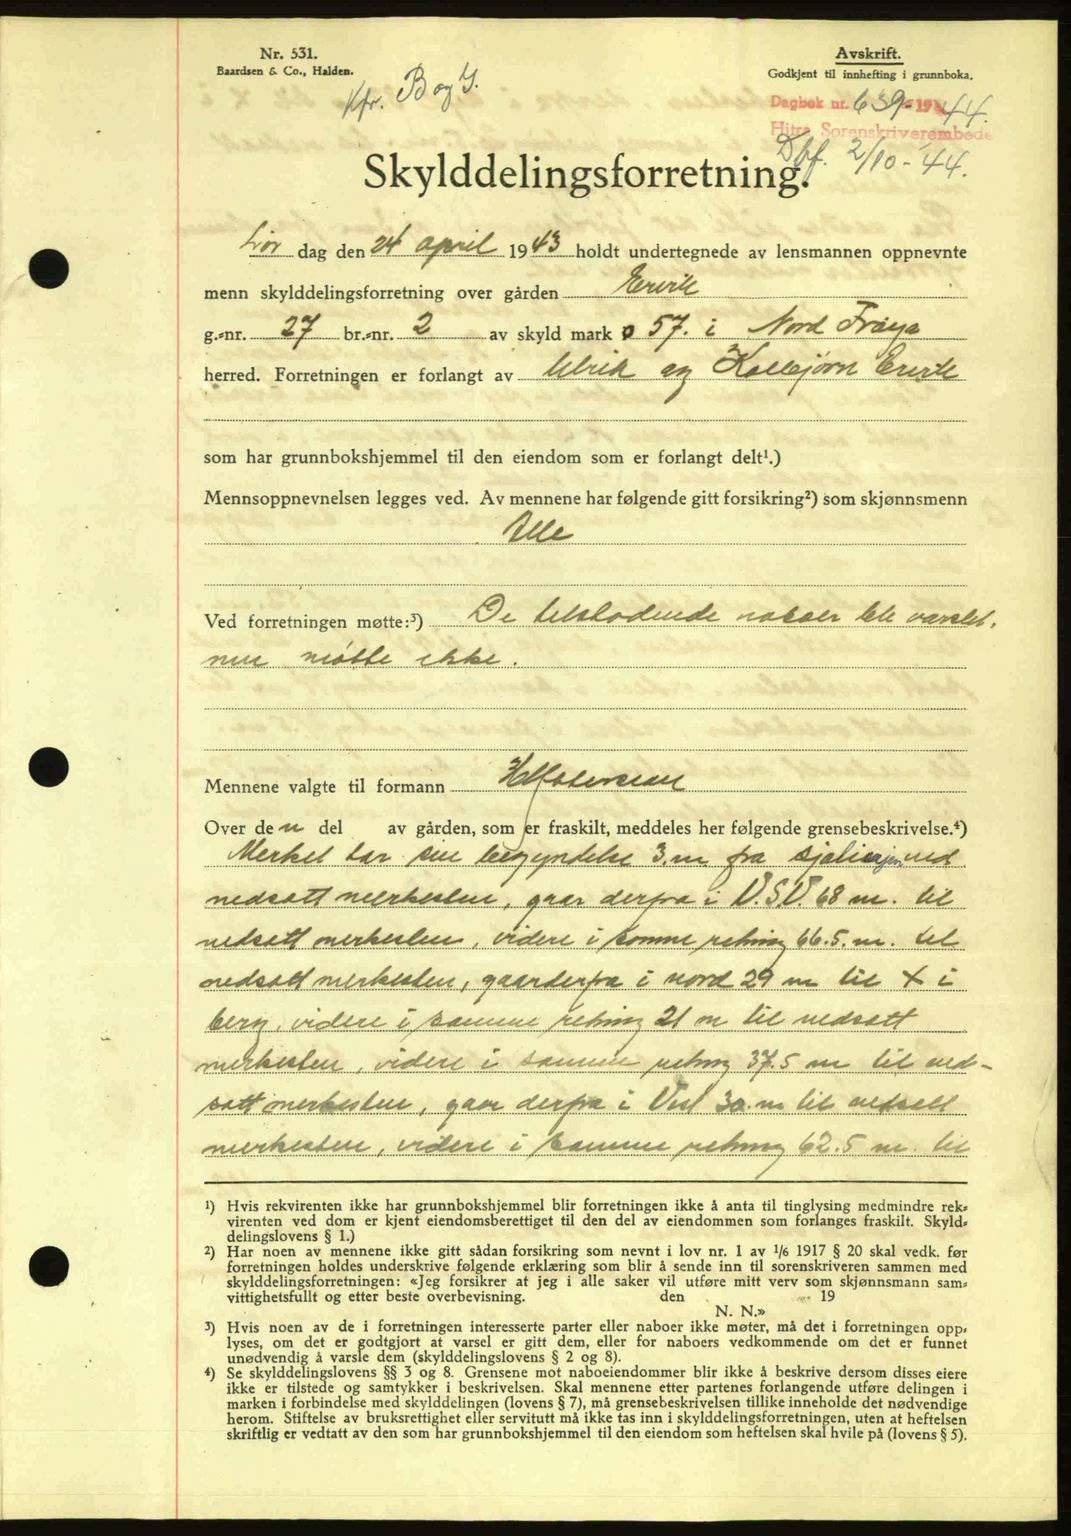 Nr. 531.
Baardsen & Co., Halden.
Kfr. B og Y.
Avskrift.
Godkjent til innhefting i grunnboka.
Dagbok nr. 639 - 1944.
Hitra Sorenskriverembede
Dbf. 2/10-44.
Skylddelingsforretning.
Lør dag den 24 april 1943 holdt undertegnede av lensmannen oppnevnte
menn skylddelingsforretning over gården Ervik
g.-nr. 27 br.-nr. 2 av skyld mark 0 57. i Nord Frøya
herred. Forretningen er forlangt av Ulrik og Kolbjørn Ervik
som har grunnbokshjemmel til den eiendom som er forlangt delt¹.)
Mennsoppnevnelsen legges ved. Av mennene har følgende gitt forsikring²) som skjønnsmenn
Alle
Ved forretningen møtte:³) De tilstødende naboer ble varslet,
men møtte ikke.
Mennene valgte til formann
Over den del av gården, som er fraskilt, meddeles her følgende grensebeskrivelse.⁴)
Merket tar sin begyndelse 3.m. fra sjølinjen ved
nedsatt merkesten, gaar derfra i V.S.V. 68 m. til
nedsatt merkesten, videre i samme retning 66.5.m. til
nedsatt merkesten, gaar derfra i nord 29 m til X i
berg, videre i samme retning 21 m til nedsatt
merkesten, videre i samme retning 37.5 m til ned-
satt merkesten, gaar derfra i Vest 30.m til nedsatt
merkesten, videre i samme retning 62.5 m. til
¹) Hvis rekvirenten ikke har grunnbokshjemmel blir forretningen ikke å anta til tinglysing medmindre rek-
virenten ved dom er kjent eiendomsberettiget til den del av eiendommen som forlanges fraskilt. Skyld-
delingslovens § 1.)
²) Har noen av mennene ikke gitt sådan forsikring som nevnt i lov nr. 1 av 1/6 1917 § 20 skal vedk. før
forretningen holdes underskrive følgende erklæring som blir å sende inn til sorenskriveren sammen med
skylddelingsforretningen: «Jeg forsikrer at jeg i alle saker vil utføre mitt verv som skjønnsmann sam-
vittighetsfullt og etter beste overbevisning. den 19
N. N.»
³) Hvis noen av de i forretningen interesserte parter eller naboer ikke møter, må det i forretningen opp-
lyses, om det er godtgjort at varsel er gitt dem, eller for naboers vedkommende om det er funnet
unødvendig å varsle dem (skylddelingslovens § 2 og 8).
⁴) Se skylddelingslovens §§ 3 og 8. Grensene mot naboeiendommer blir ikke å beskrive dersom disses eiere
ikke er tilstede og samtykker i beskrivelsen. Skal mennene etter partenes forlangende utføre delingen i
marken i forbindelse med skylddelingen (lovens § 7), må grensebeskrivelsen tillike inneholde det nødvendige
herom. Stiftelse av bruksrettighet eller servitutt må ikke tas inn i skylddelingsforretningen, uten at heftelsen
skriftlig er vedtatt av den som har grunnbokshjemmel til den eiendom som heftelsen skal hvile på (lovens § 5).